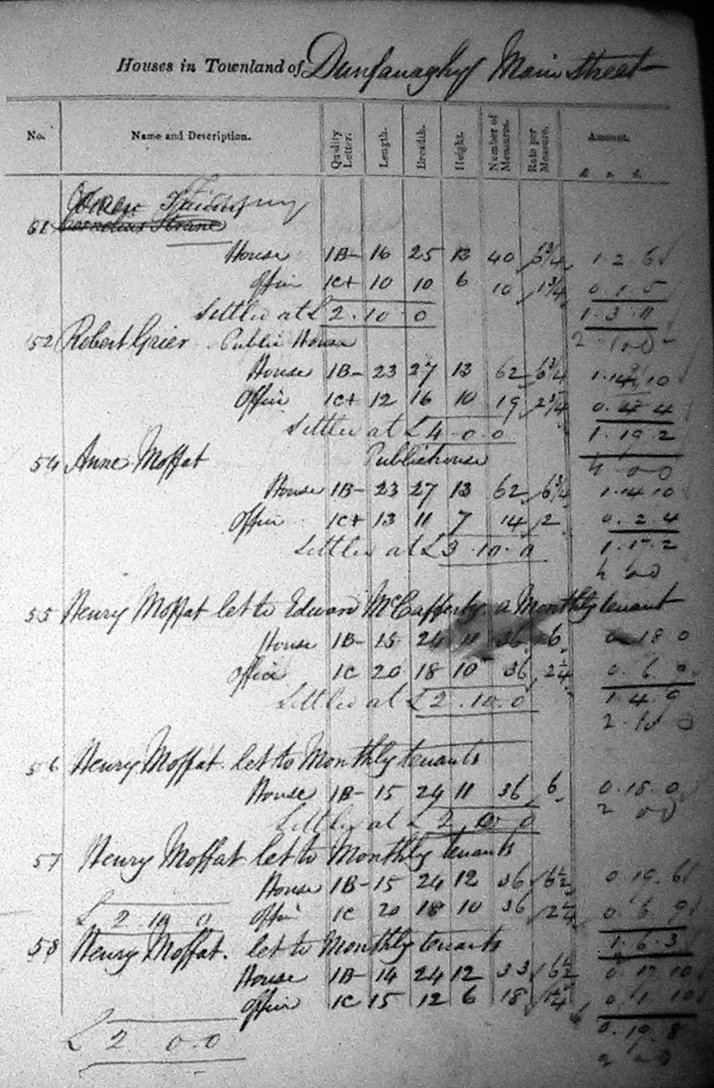 Houses in Townland of Dunfanaghy Main Street
No. Name and Description. Quality Letter. Length. Breadth. Height. Number of Measures. Rate per Measure. Amount.
51 Cornelius Strane
House 1B- 16 25 13 40 6¾ 1.2.6
Office 1C+ 10 10 6 10 1¾ 0.1.5
Settled at £2.10.0 1.3.11
52 Robert Grier Public House 2.10.0
House 1B- 23 27 13 62 6¾ 1.14.10
Office 1C+ 12 16 10 19 2¾ 0.4.4
Settled at £4.0.0 1.19.2
54 Anne Moffat Publichouse 4.0.0
House 1B- 23 27 13 62 6¾ 1.14.10
Office 1C+ 13 11 7 14 2 0.2.4
Settled at £3.10.0 1.17.2
4.0.0
55 Henry Moffat let to Edward McCafferty a Monthly tenant
House 1B- 15 24 11 36 6 0.18.0
Office 1C 20 18 10 36 2¼ 0.6.0
Settled at £2.10.0 1.4.0
2.10.0
56 Henry Moffat let to Monthly tenants
House 1B- 15 24 11 36 6 0.18.0
Settled at £2.0.0 2.0.0
57 Henry Moffat let to Monthly tenants
House 1B- 15 24 12 36 6½ 0.19.6
£2.10.0 Office 1C 20 18 10 36 2¼ 0.6.9
58 Henry Moffat. let to Monthly tenants 1.6.3
House 1B- 14 24 12 33 6½ 0.17.10
Office 1C 15 12 6 18 1¼ 0.1.10
0.19.8
£2.0.0 2.0.0